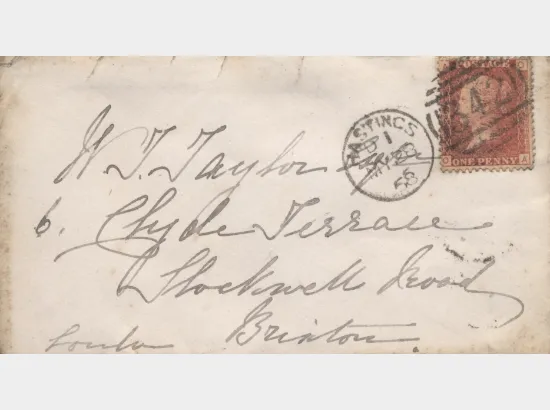 POSTAGE
HASTINGS
D 1
68
ONE PENNY
O A
W. J. Taylor Esqre
6. Clyde Terrace
Stockwell Road
Brixton.
London